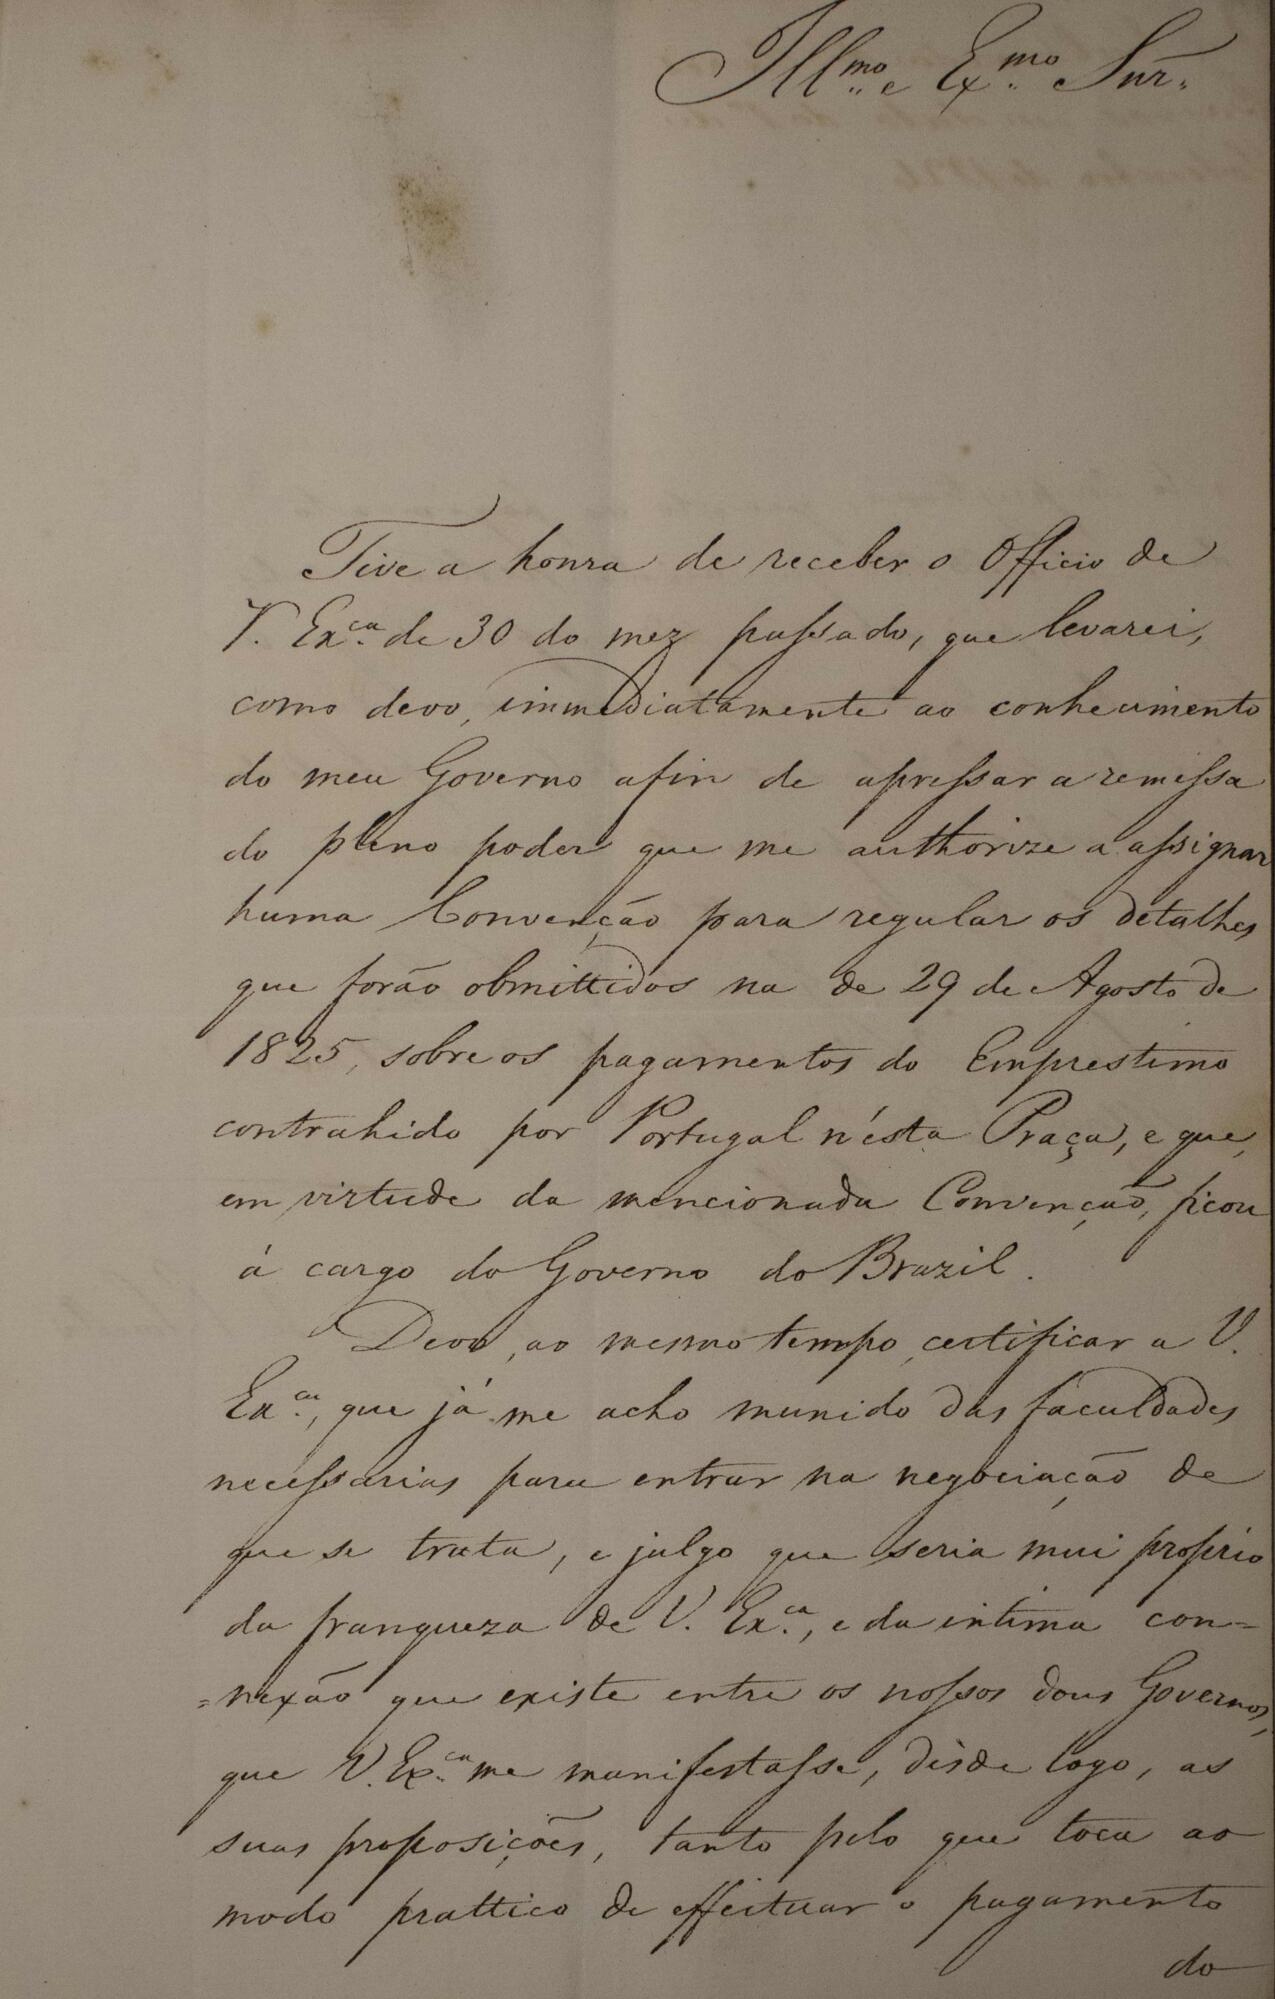 Illmo e Exmo Snr.
Tive a honra de receber o Officio de
V. Exca. de 30 do mez passado, que levarei,
como devo, immediatamente ao conhecimento
do meu Governo afin de apressar a remessa
do pleno poder que me authorize a assignar
huma Convenção para regular os detalhes
que forão obmittidos na de 29 de Agosto de
1825, sobre os pagamentos do Emprestimo
contrahido por Portugal n'ésta Praça, e que,
em virtude da mencionada Convenção, ficou
á cargo do Governo do Brazil.
Devo, ao mesmo tempo, certificar a V.
Exca., que já me acho munido das faculdades
necessarias para entrar na negociação de
que se trata, e julgo que seria mui proprio
da franqueza de V. Exca., e da intima con=
=nexão que existe entre os nossos dous Governos,
que V. Exca. me manifestasse, désde logo, as
suas proposições, tanto pelo que toca ao
modo prattico de effeituar o pagamento
do